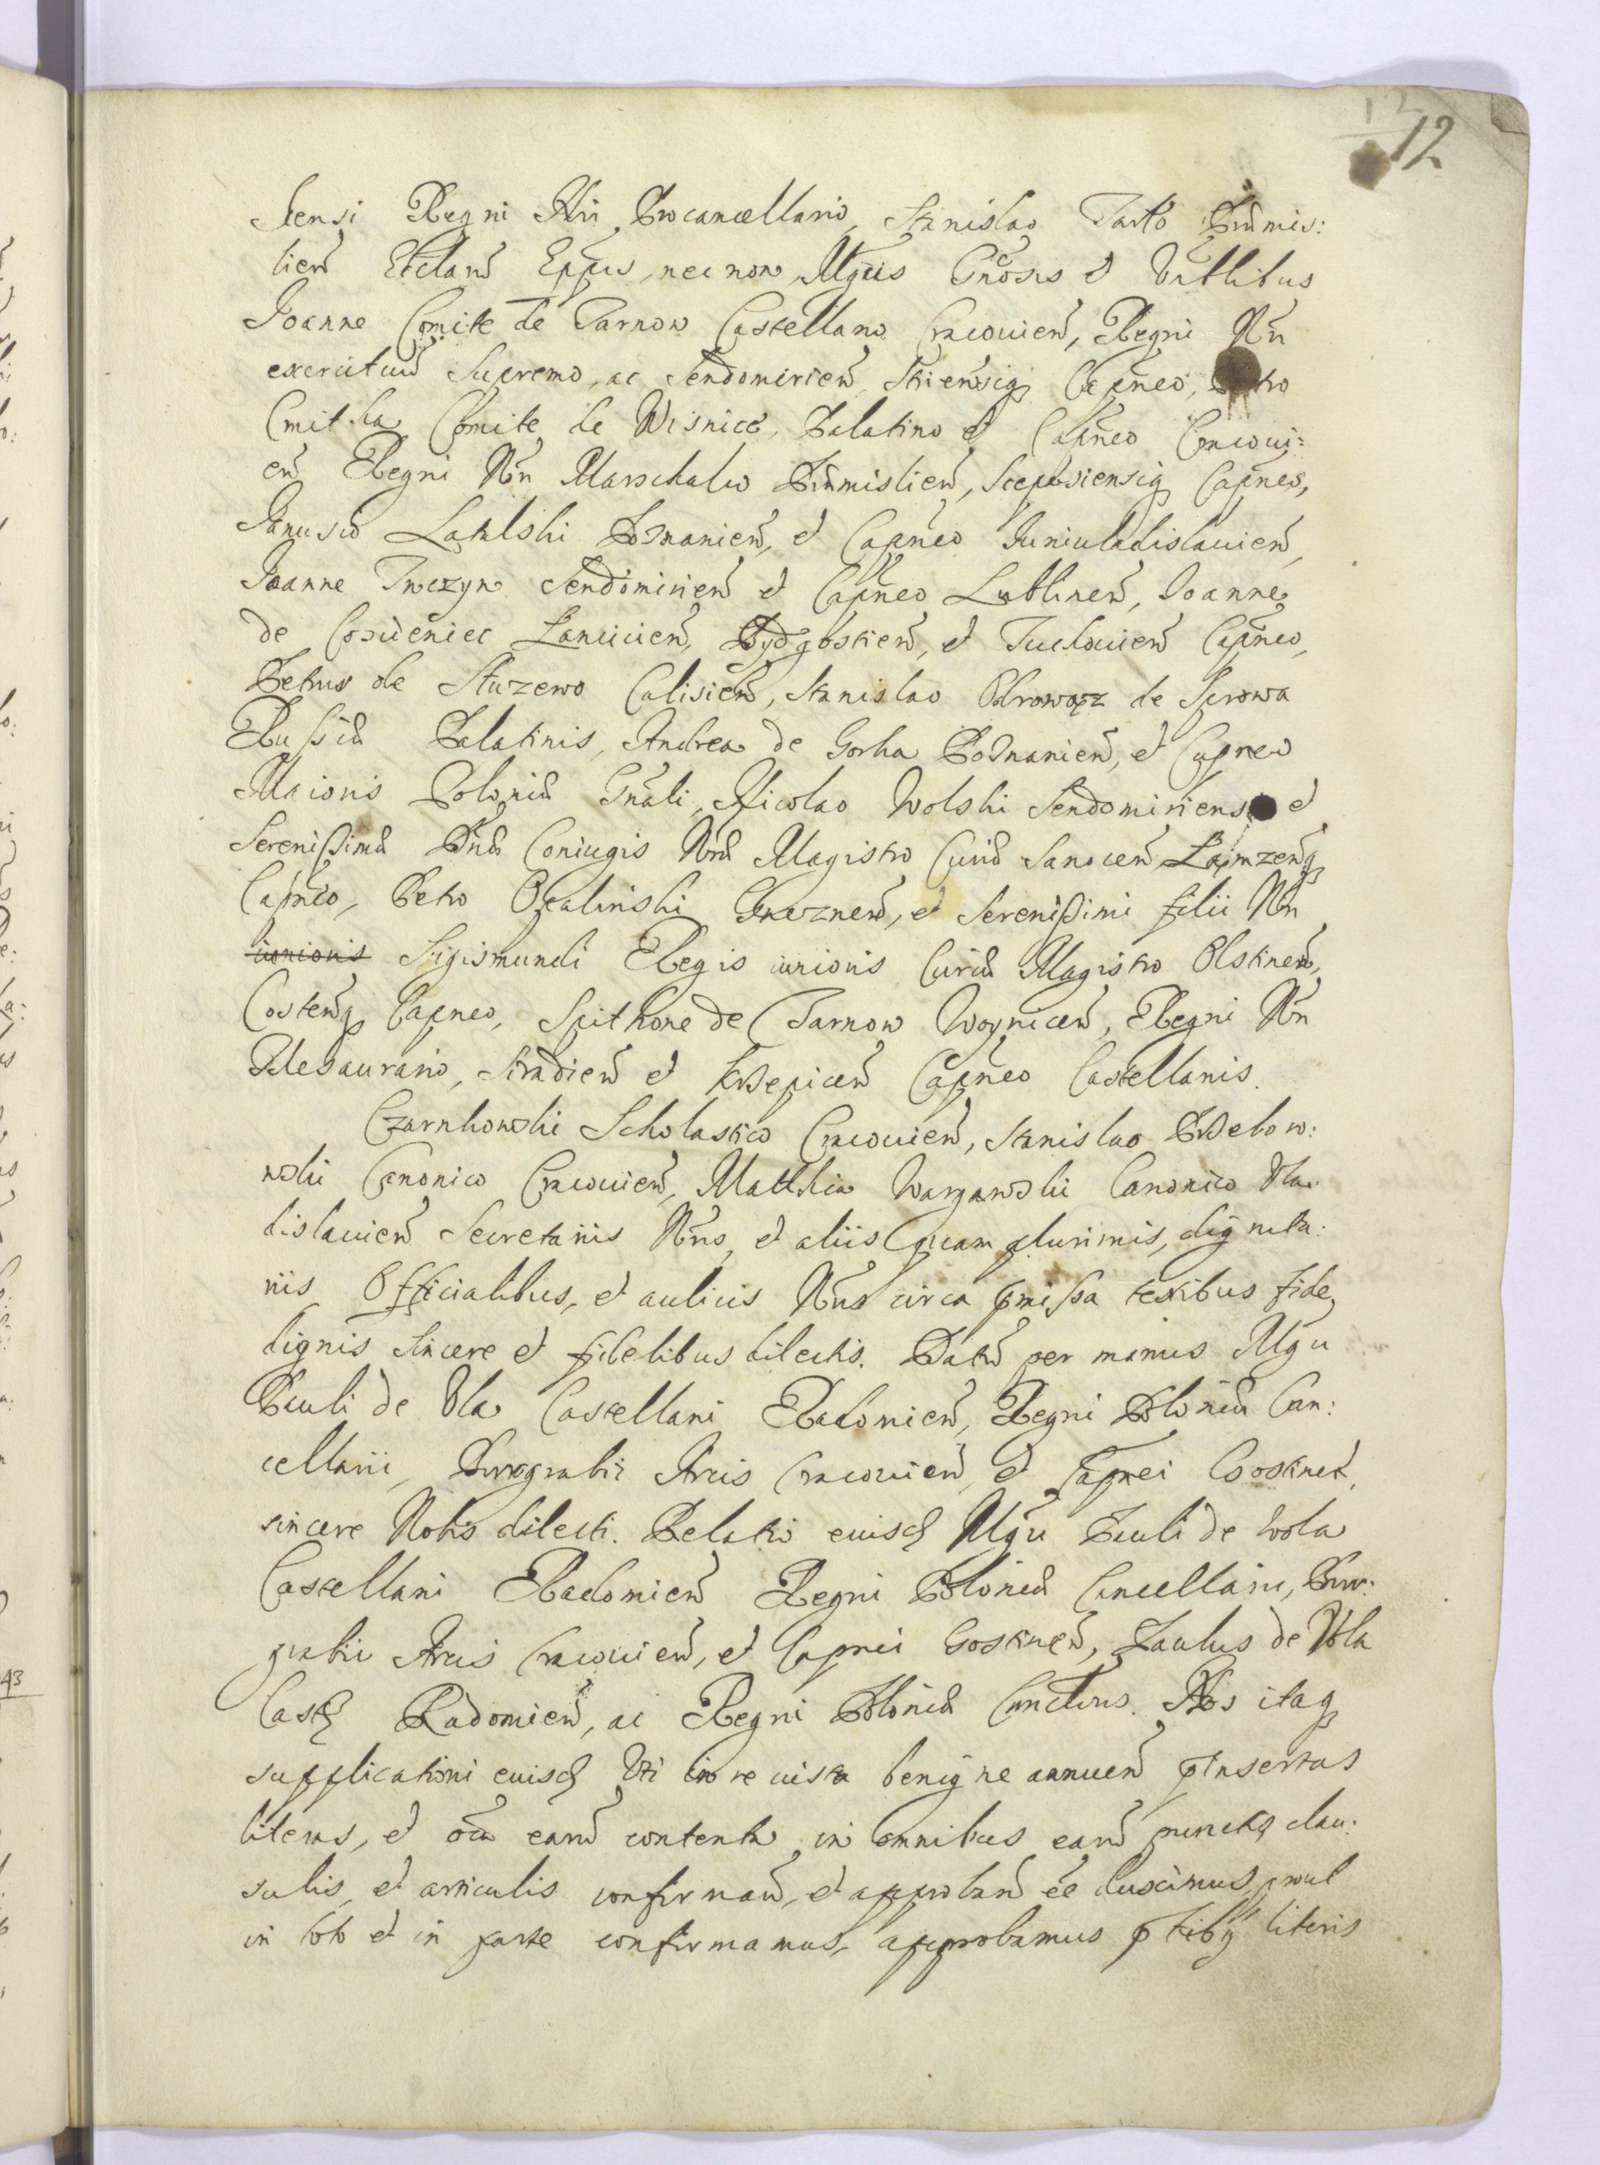 12
12
stensi Regni Nri Procancellario, Stanislao Tarło Pręmis:
lien Ecclarũ Eppis, nec non Mgcis Gñosis et Vrblibus
Joanne Comite de Tarnow Castellano Cracovien, Regni Nrĩ
exercituũ Supremo, ac Sendomirien Strien̄siq Capneo, Petro
Cmitha Comite de Wisnicz, Palatino et Capneo Cracovi:
en̄ Regni Nrĩ Marschalco Pręmislien, Scepusiensiq Capneo,
Janusio Latalski Posnanien, et Capneo Juniuladislavien,
Joanne Tenczyn Sendomirien et Capneo Lublinen, Joanne
de Coscieniec Lancicien, Bydgostien, et Tucholvien Capneo,
Petrus de Słuzewo Calisien, Stanislao Odrowąz de Sprowa
Russię Palatinis, Andrea de Gorka Posnanien, et Capneo
Maioris Polonię Gnãli, Nicolao Wolski Sendomiriens et
Serenissimę Dnę Coniugis Nrę Magistro Curię Sanocen, Łomzenq
Capneo, Petro Opalinski Gneznen, et Serenissimi filii Nrĩ
iunioris Sigismundi Regis iunioris Curię Magistro Olstinen,
Costenq Capneo, Spithone de Tarnow Woynicen, Regni Nrĩ
Thesaurario, Siradien et Krzepicen Capneo Castellanis.
Czarnkowski Scholastico Cracovien, Stanislao Przebow:
wski Canonico Cracovien, Matthia Wargawski Canonico Vla:
dislavien Secretariis Nrĩs, et aliis quam plurimis, dignita:
riis Officialibus, et aulicis Nrĩs circa pmissa testibus fide
dignis Sincere et fidelibus dilectis. Datũ per manus Mgci
Pauli de Vola Castellani Radomien, Regni Polonię Can:
cellarii, Burgrabii Arcis Cracovien, et Capnei Gostinen,
sincere Nobis dilecti. Relatio eiusd Mgci Pauli de Wola
Castellani Radomien Regni Polonię Cancellarii, Burg:
grabii Arcis Cracovien, et Capnei Gostinen, Paulus de Vola
Castq Radomien, ac Regni Polonię Cancellarius. Nos itaq
supplicationi eiusd Uti in re iusta benigne annuen pinsertas
literas, et oĩa earũ contenta, in omnibus earũ punctis, clau:
sulis, et articulis confirmañ, et approbañ ee duximus, prout
in toto et in parte confirmamus, approbamus p̃ntibq literis